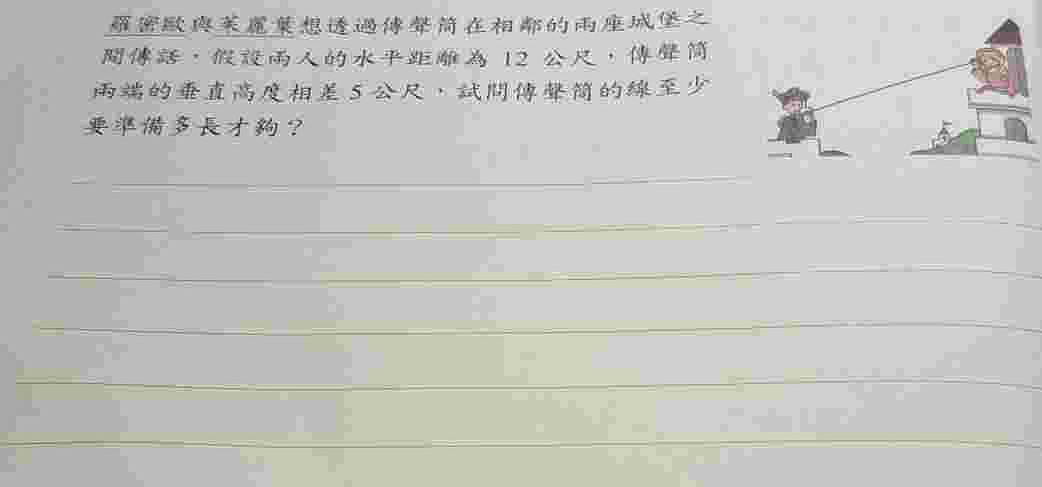 羅密歐與茱麗葉想透過傳聲筒在相鄰的兩座城堡之
間傳話，假設兩人的水平距離為 12 公尺，傳聲筒
兩端的垂直高度相差 5 公尺，試問傳聲筒的線至少
要準備多長才夠？